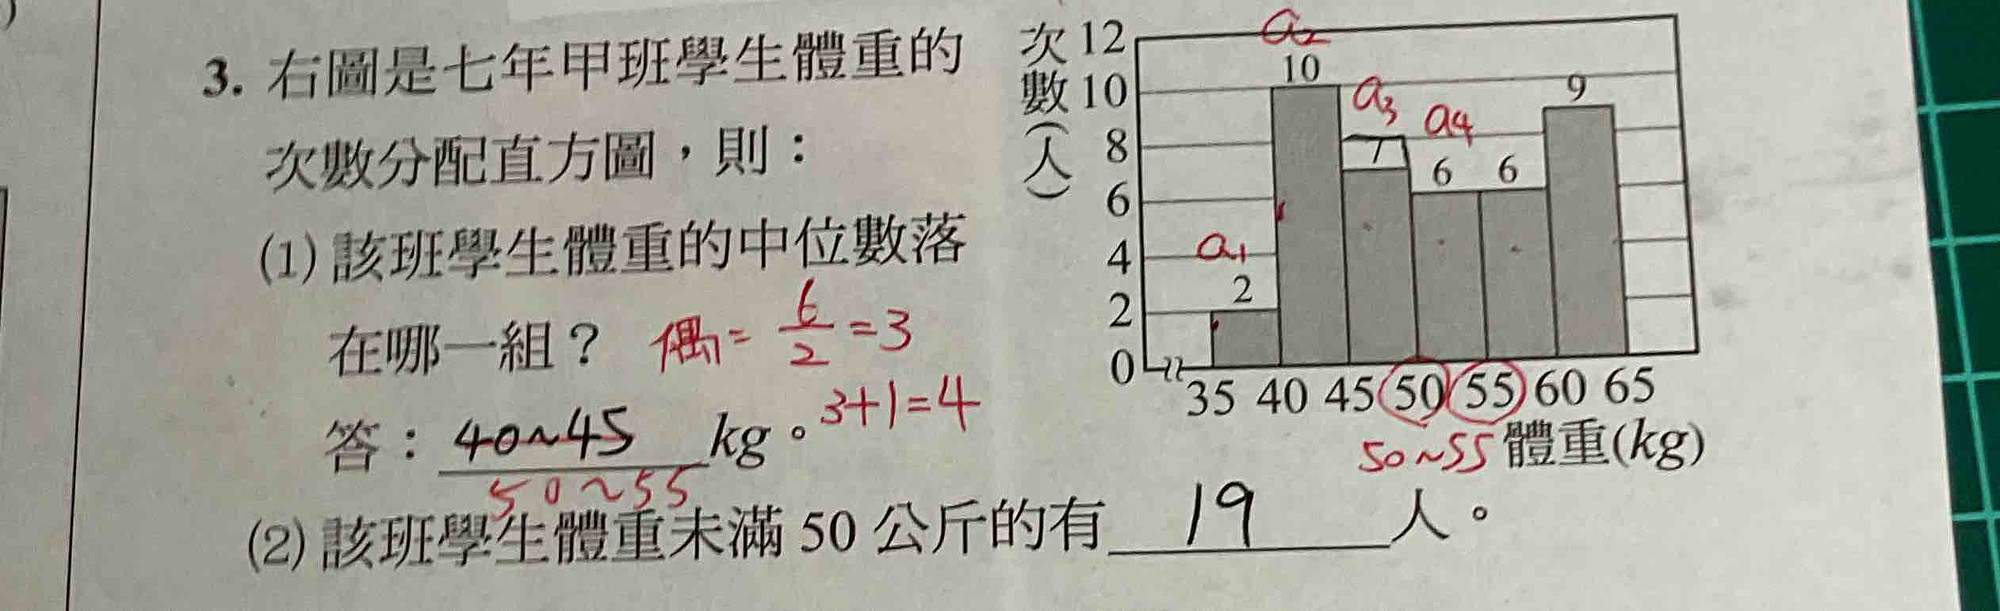 3. 右圖是七年甲班學生體重的
次數分配直方圖，則：
(1) 該班學生體重的中位數落
在哪一組？ 偶= 6/2 = 3
3+1=4
答：40~45 kg。
50~55
(2) 該班學生體重未滿 50 公斤的有 19 人。
次數(人)
12
10
8
6
4
2
0
a1
2
a2
10
a3
7
a4
6
6
9
35 40 45 50 55 60 65
50~55 體重(kg)